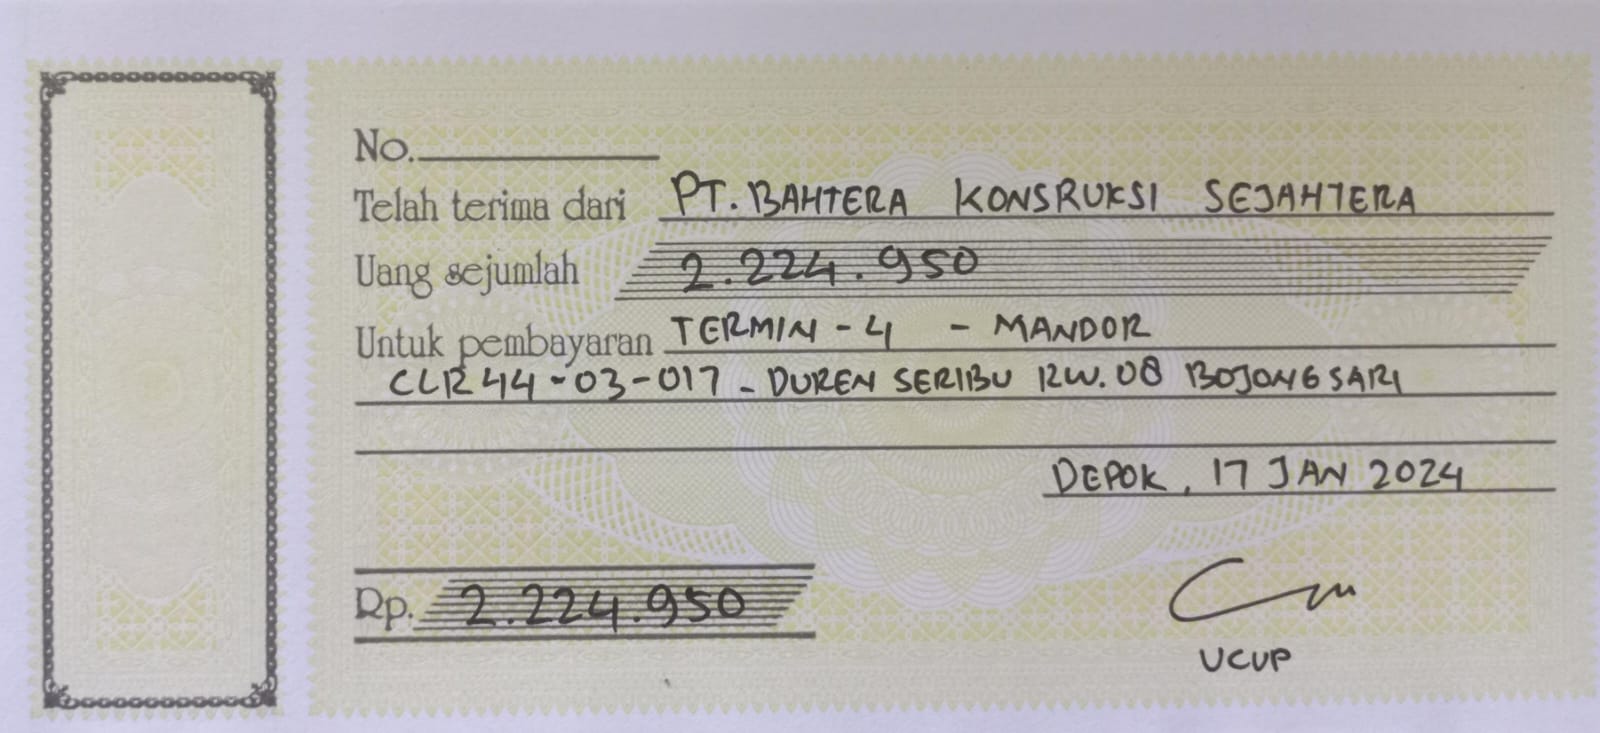 No.
Telah terima dari PT. BAHTERA KONSRUKSI SEJAHTERA
Uang sejumlah 2.224.950
Untuk pembayaran TERMIN - 4 - MANDOR
CLR 44 - 03 - 017 - DUREN SERIBU RW. 08 BOJONGSARI
DEPOK, 17 JAN 2024
Rp. 2.224.950
UCUP